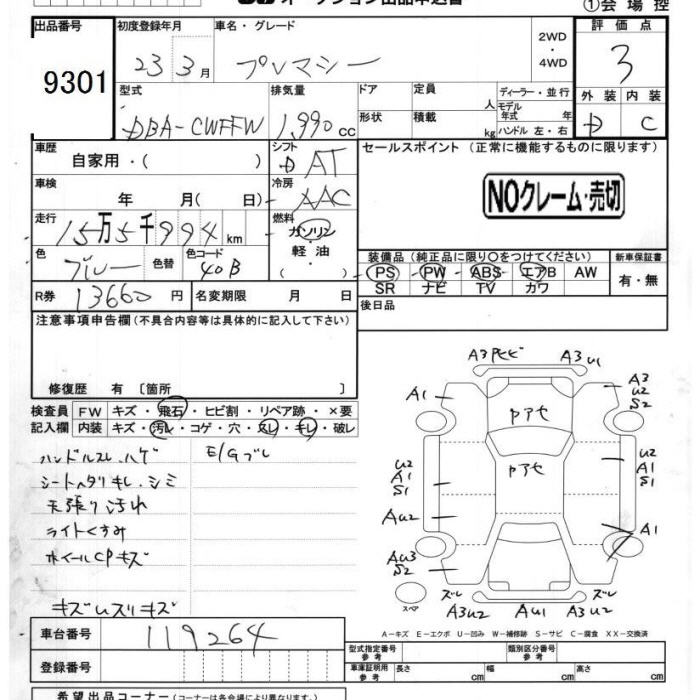 オークション出品申込書
①会場控
出品番号 初度登録年月 車名・グレード 評価点
9301 23 3月 プレマシー 2WD・4WD 3
型式 排気量 ドア 定員 人 ディーラー・並行 外装 内装
DBA-CWEFFW 1,990 cc 形状 積載 kg モデル年式 年 D C
ハンドル 左・右
車歴 シフト セールスポイント (正常に機能するものに限ります)
自家用・( ) D AT
車検 冷房 NOクレーム・売切
年 月( 日) AAC
走行 燃料
15万5千994km ガソリン・軽油・( )
色 色替 色コード 装備品 (純正品に限り○をつけてください) 新車保証書
ブルー 40B PS PW ABS エアB AW 有・無
SR ナビ TV カワ
R券 13660円 名変期限 月 日 後日品
注意事項申告欄 (不具合内容等は具体的に記入して下さい)
修復歴 有 [箇所 ]
検査員 FW キズ・飛石・ヒビ割・リペア跡・×要
記入欄 内装 キズ・汚レ・コゲ・穴・スレ・キレ・破レ
ハンドルスレ、ハゲ E/Gブレ
シートヘタリ キレ、シミ
天張り汚れ
ライトくすみ
ホイールCPキズ
キズUスリキズ
A3 A3 U1
A1 A3 U2 S2
Pアセ
Pアセ
U2 A1 S1 U2 A1 S1
AU2 A1
AU3 S2
スペア ズレ A3U2 AU1 ズレ A3U2
A-キズ E-エクボ U-凹み W-補修跡 S-サビ C-腐食 XX-交換済
車台番号 119264
登録番号
型式指定番号 参考 類別区分番号 参考
車庫証明用 参考 長さ cm 幅 cm 高さ cm
希望出品コーナー (コーナーは各会場により異なります)